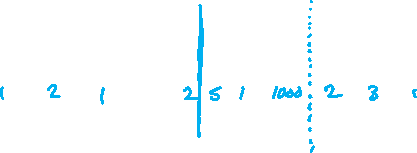 1 2 1 2 5 1 1000 2 3 1